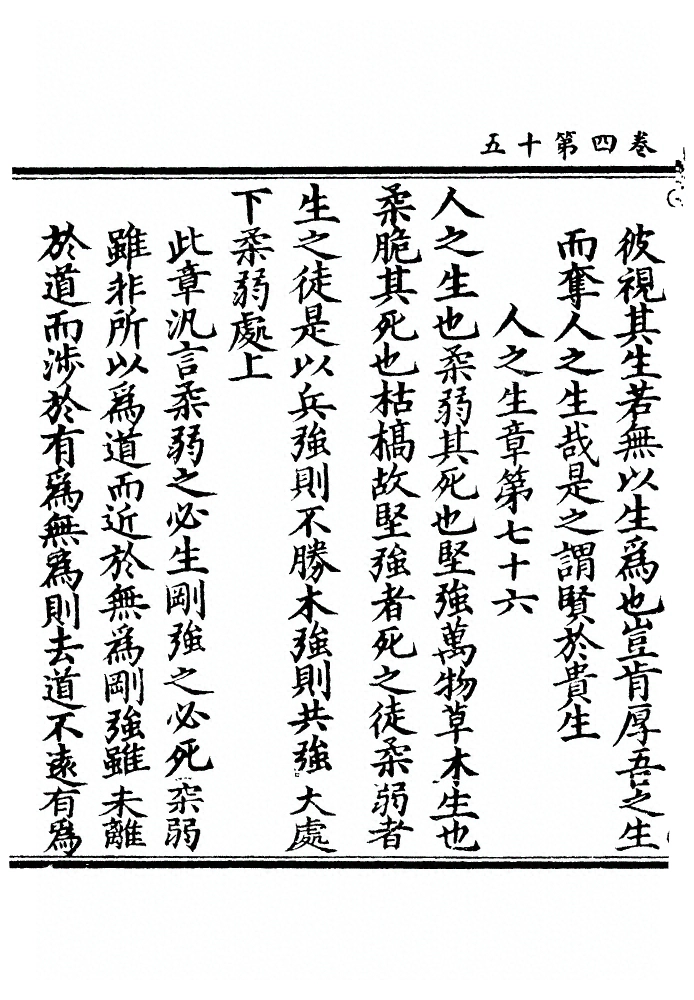 卷四第十五
彼視其生若無以生爲也豈肯厚吾之生
而奪人之生哉是之謂賢於貴生
人之生章第七十六
人之生也柔弱其死也堅強萬物草木生也
柔脆其死也枯槁故堅強者死之徒柔弱者
生之徒是以兵強則不勝木強則共強大處
下柔弱處上
此章汎言柔弱之必生剛強之必死柔弱
雖非所以爲道而近於無爲剛強雖未離
於道而涉於有爲無爲則去道不遠有爲